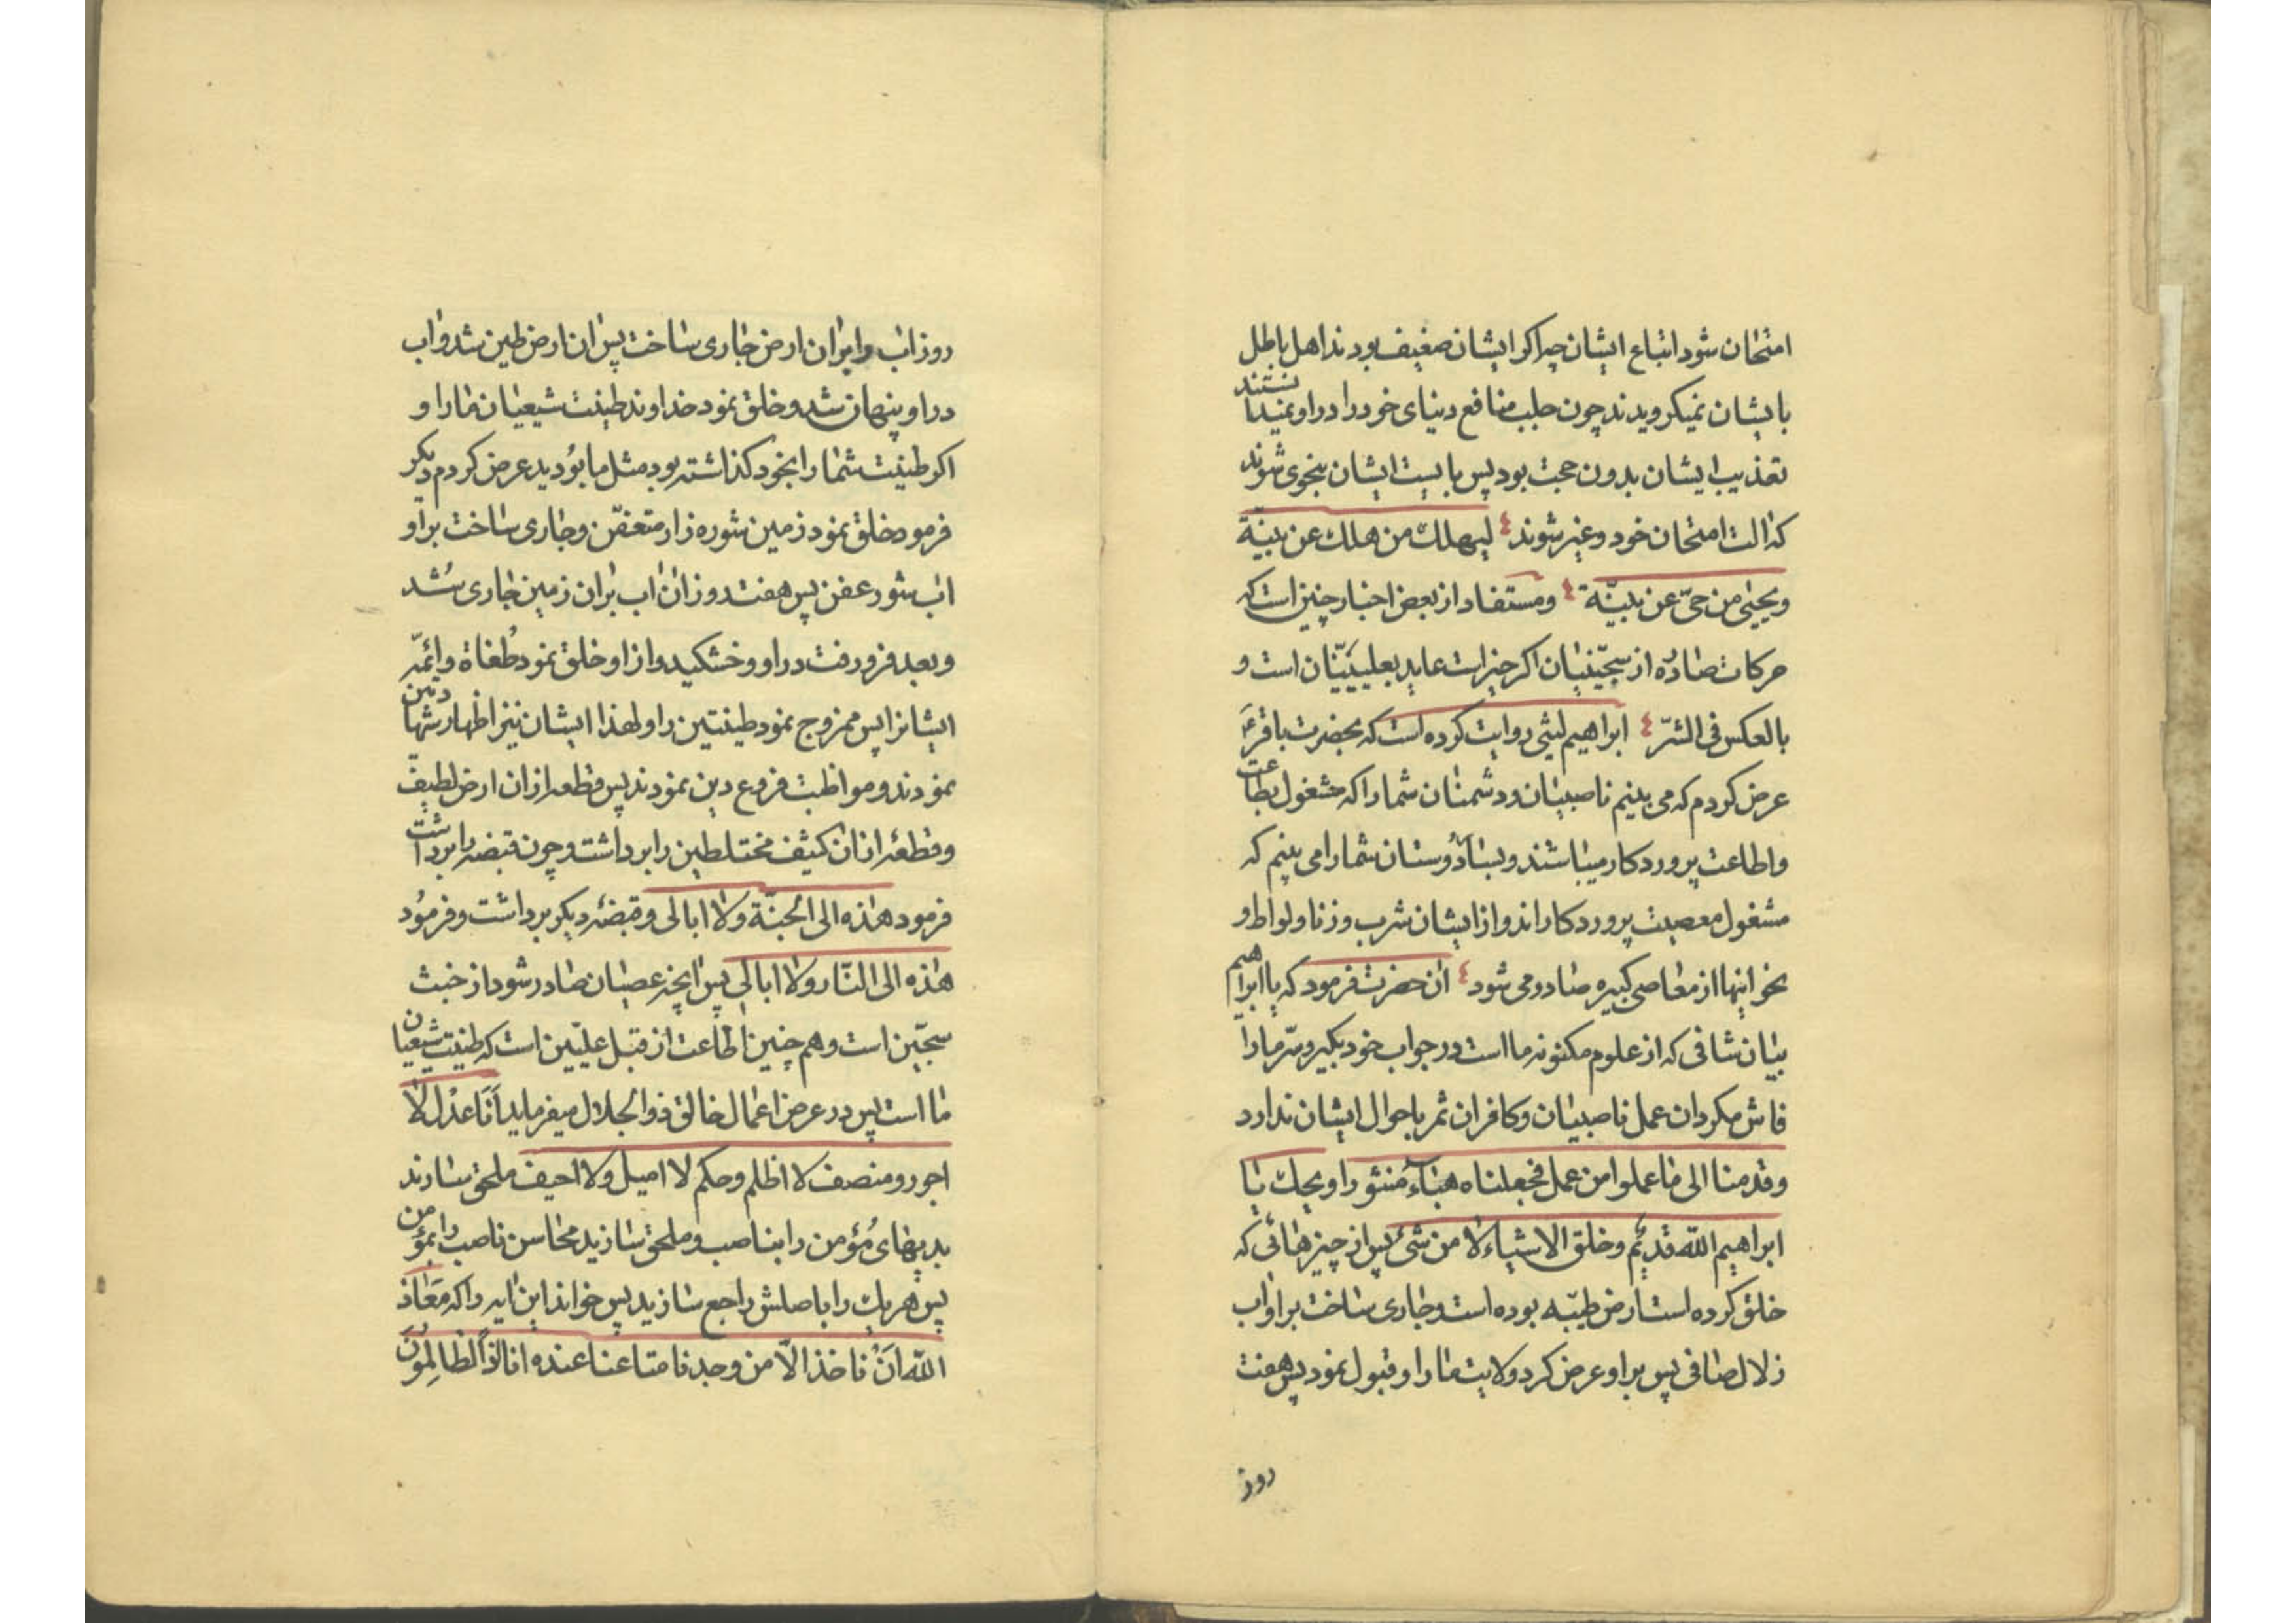 امتحان شود اتباع ایشان چرا کر ایشان ضعیف بودند اهل باطل
بایشان نمیکرویدند چون جلب منافع دنیای خود را در او نمیدانستند
تعذیب ایشان بدون حجت بود پس بایست ایشان بنحوی شوند
که الت امتحان خود و غیر شوند لیهلك من هلك عن بینّة
ویحیی من حیّ عن بیّنة ومستفاد از بعض اخبار چنین است که
حرکات صادره از سجّینیان اکر خیر است عاید بعلییّنیّان است و
بالعکس فی الشرّ ابراهیم لیثی روایت کرده است که بحضرت باقرع
عرض کردم که می بینم ناصبیان و دشمنان شما را که مشغول بطاعت
واطاعت پروردکار میباشند وبسا دوستان شما را می بینم که
مشغول معصیت پروردکار اند و از ایشان شرب وزنا ولواط و
نحو اینها از معاصی کبیره صادر می شود ان حضرت فرمود که یا ابراهیم
بیان شافی که از علوم مکنونه ما است در جواب خود بکیر وسّر ما را
فاش مکردان عمل ناصبیان وکافران ثمر باحوال ایشان ندارد
وقدمنا الی ما عملوا من عمل فجعلناه هبآء مُنثورا ویحك یا
ابراهیم اللّه قدیُم وخلق الاشیاء لا من شئ پس از چیزهائی که
خلق کرده است ارض طیبّه بوده است وجاری ساخت براو اب
زلال صافی پس براو عرض کرد ولایت ما را و قبول نمود پس هفت
روز
روز اب را بر ان ارض جاری ساخت پس ان ارض طین شد و اب
در او پنهان شد و خلق نمود خداوند طینت شیعیان ما را و
اکر طینت شما را بخود کذاشته بود مثل ما بوُدید عرض کردم دیکر
فرمود خلق نمود زمین شوره زار متعفّن وجاری ساخت براو
اب شور عفن پس هفت روز ان اب بر ان زمین جاری شُد
وبعد فرو رفت در او وخشکید و از او خلق نمود طُغاة وائمّه
ایشانرا پس ممزوج نمود طینتین را ولهذا ایشان نیز اظهار شهادتین
نمودند ومواظبت فروع دین نمودند پس قطعه از ان ارض لطیف
وقطعهٔ از ان کثیف مختلطین را برداشت وچون قبضه را برداشت
فرمود هذه الی الجنّة ولا ابالی وقبضهٔ دیکر برداشت وفرمُود
هذه الی النّار ولا ابالی پس انچه عصیان صادر شود از خبث
سجّین است وهم چنین اطاعت از قبل علیّین است که طینت شیعیان
ما است پس در عرض اعمال خالق ذوالجلال میفرماید اَنَا عدْل لا
اجور ومنصف لا اظلم وحکم لا امیل ولا احیف ملحق سازند
بدیهای مُؤمن را بناصب وملحق سازید محاسن ناصب را بمؤمن
پس هر یك را باصلش راجع سازید پس خواند این ایه را که مَعَاذ
اللّه اَنْ ناخذ الاّ من وجدنا متاعنا عنده انا اذاً لظالِموُنَ